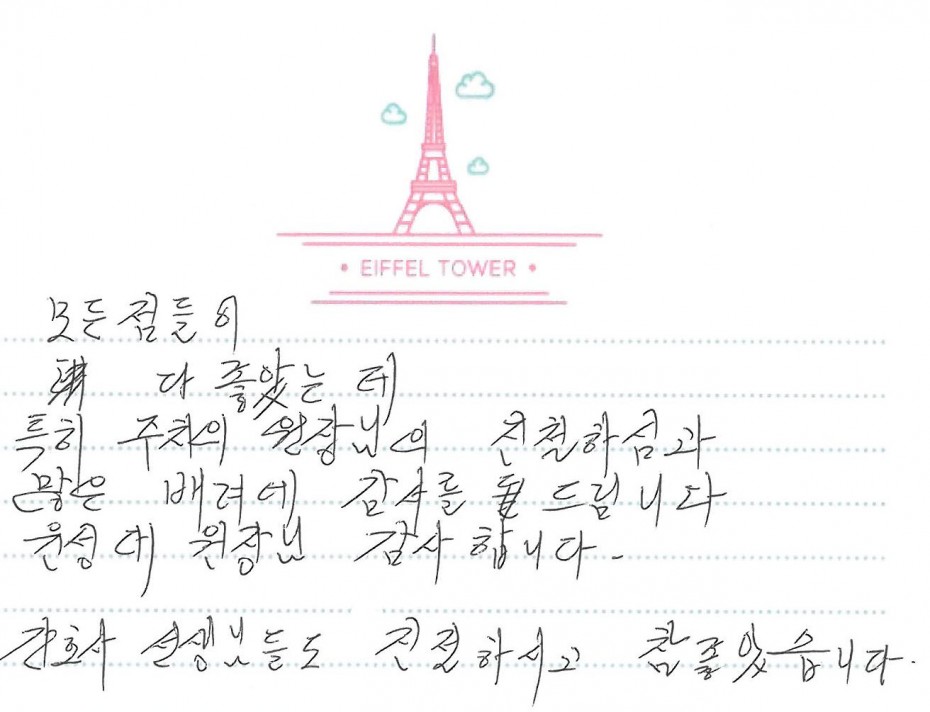 • EIFFEL TOWER •
모든 점들이
다 좋았는데
특히 주차의 원장님의 친철하심과
많은 배려에 감사를 드립니다
윤성대 원장님 감사합니다.
간호사 선생님들도 친절하시고 참 좋았습니다.